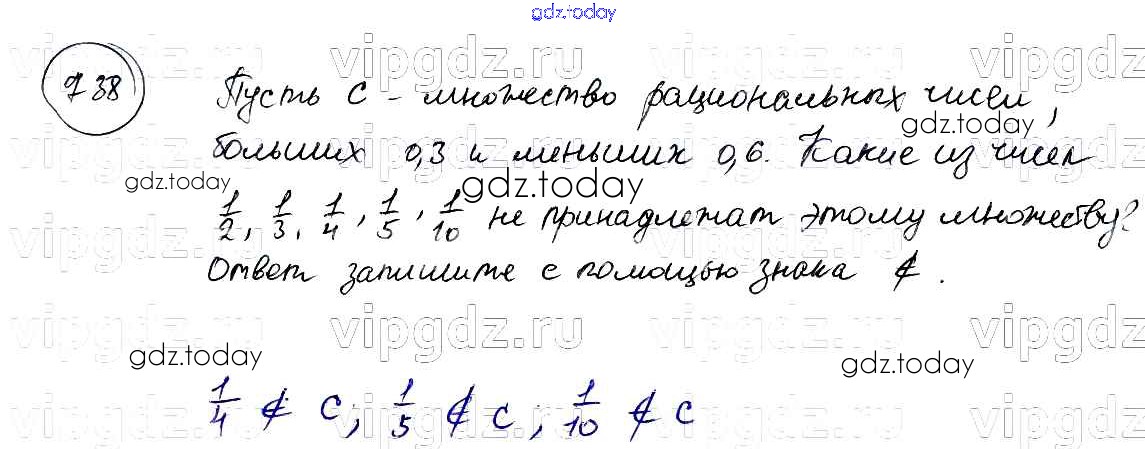 gdz.today
vipgdz.ru vipgdz.ru vipgdz.ru vipgdz.ru
738 Пусть C - множество рациональных чисел,
gdz.today
больших 0,3 и меньших 0,6. Какие из чисел
gdz.today gdz.today
1/2, 1/3, 1/4, 1/5, 1/10 не принадлежат этому множеству?
vipgdz.ru vipgdz.ru vipgdz.ru vipgdz.ru
Ответ запишите с помощью знака ∉.
vipgdz.ru vipgdz.ru vipgdz.ru vipgdz.ru
gdz.today gdz.today gdz.today
1/4 ∉ C; 1/5 ∉ C; 1/10 ∉ C
vipgdz.ru vipgdz.ru vipgdz.ru vipgdz.ru